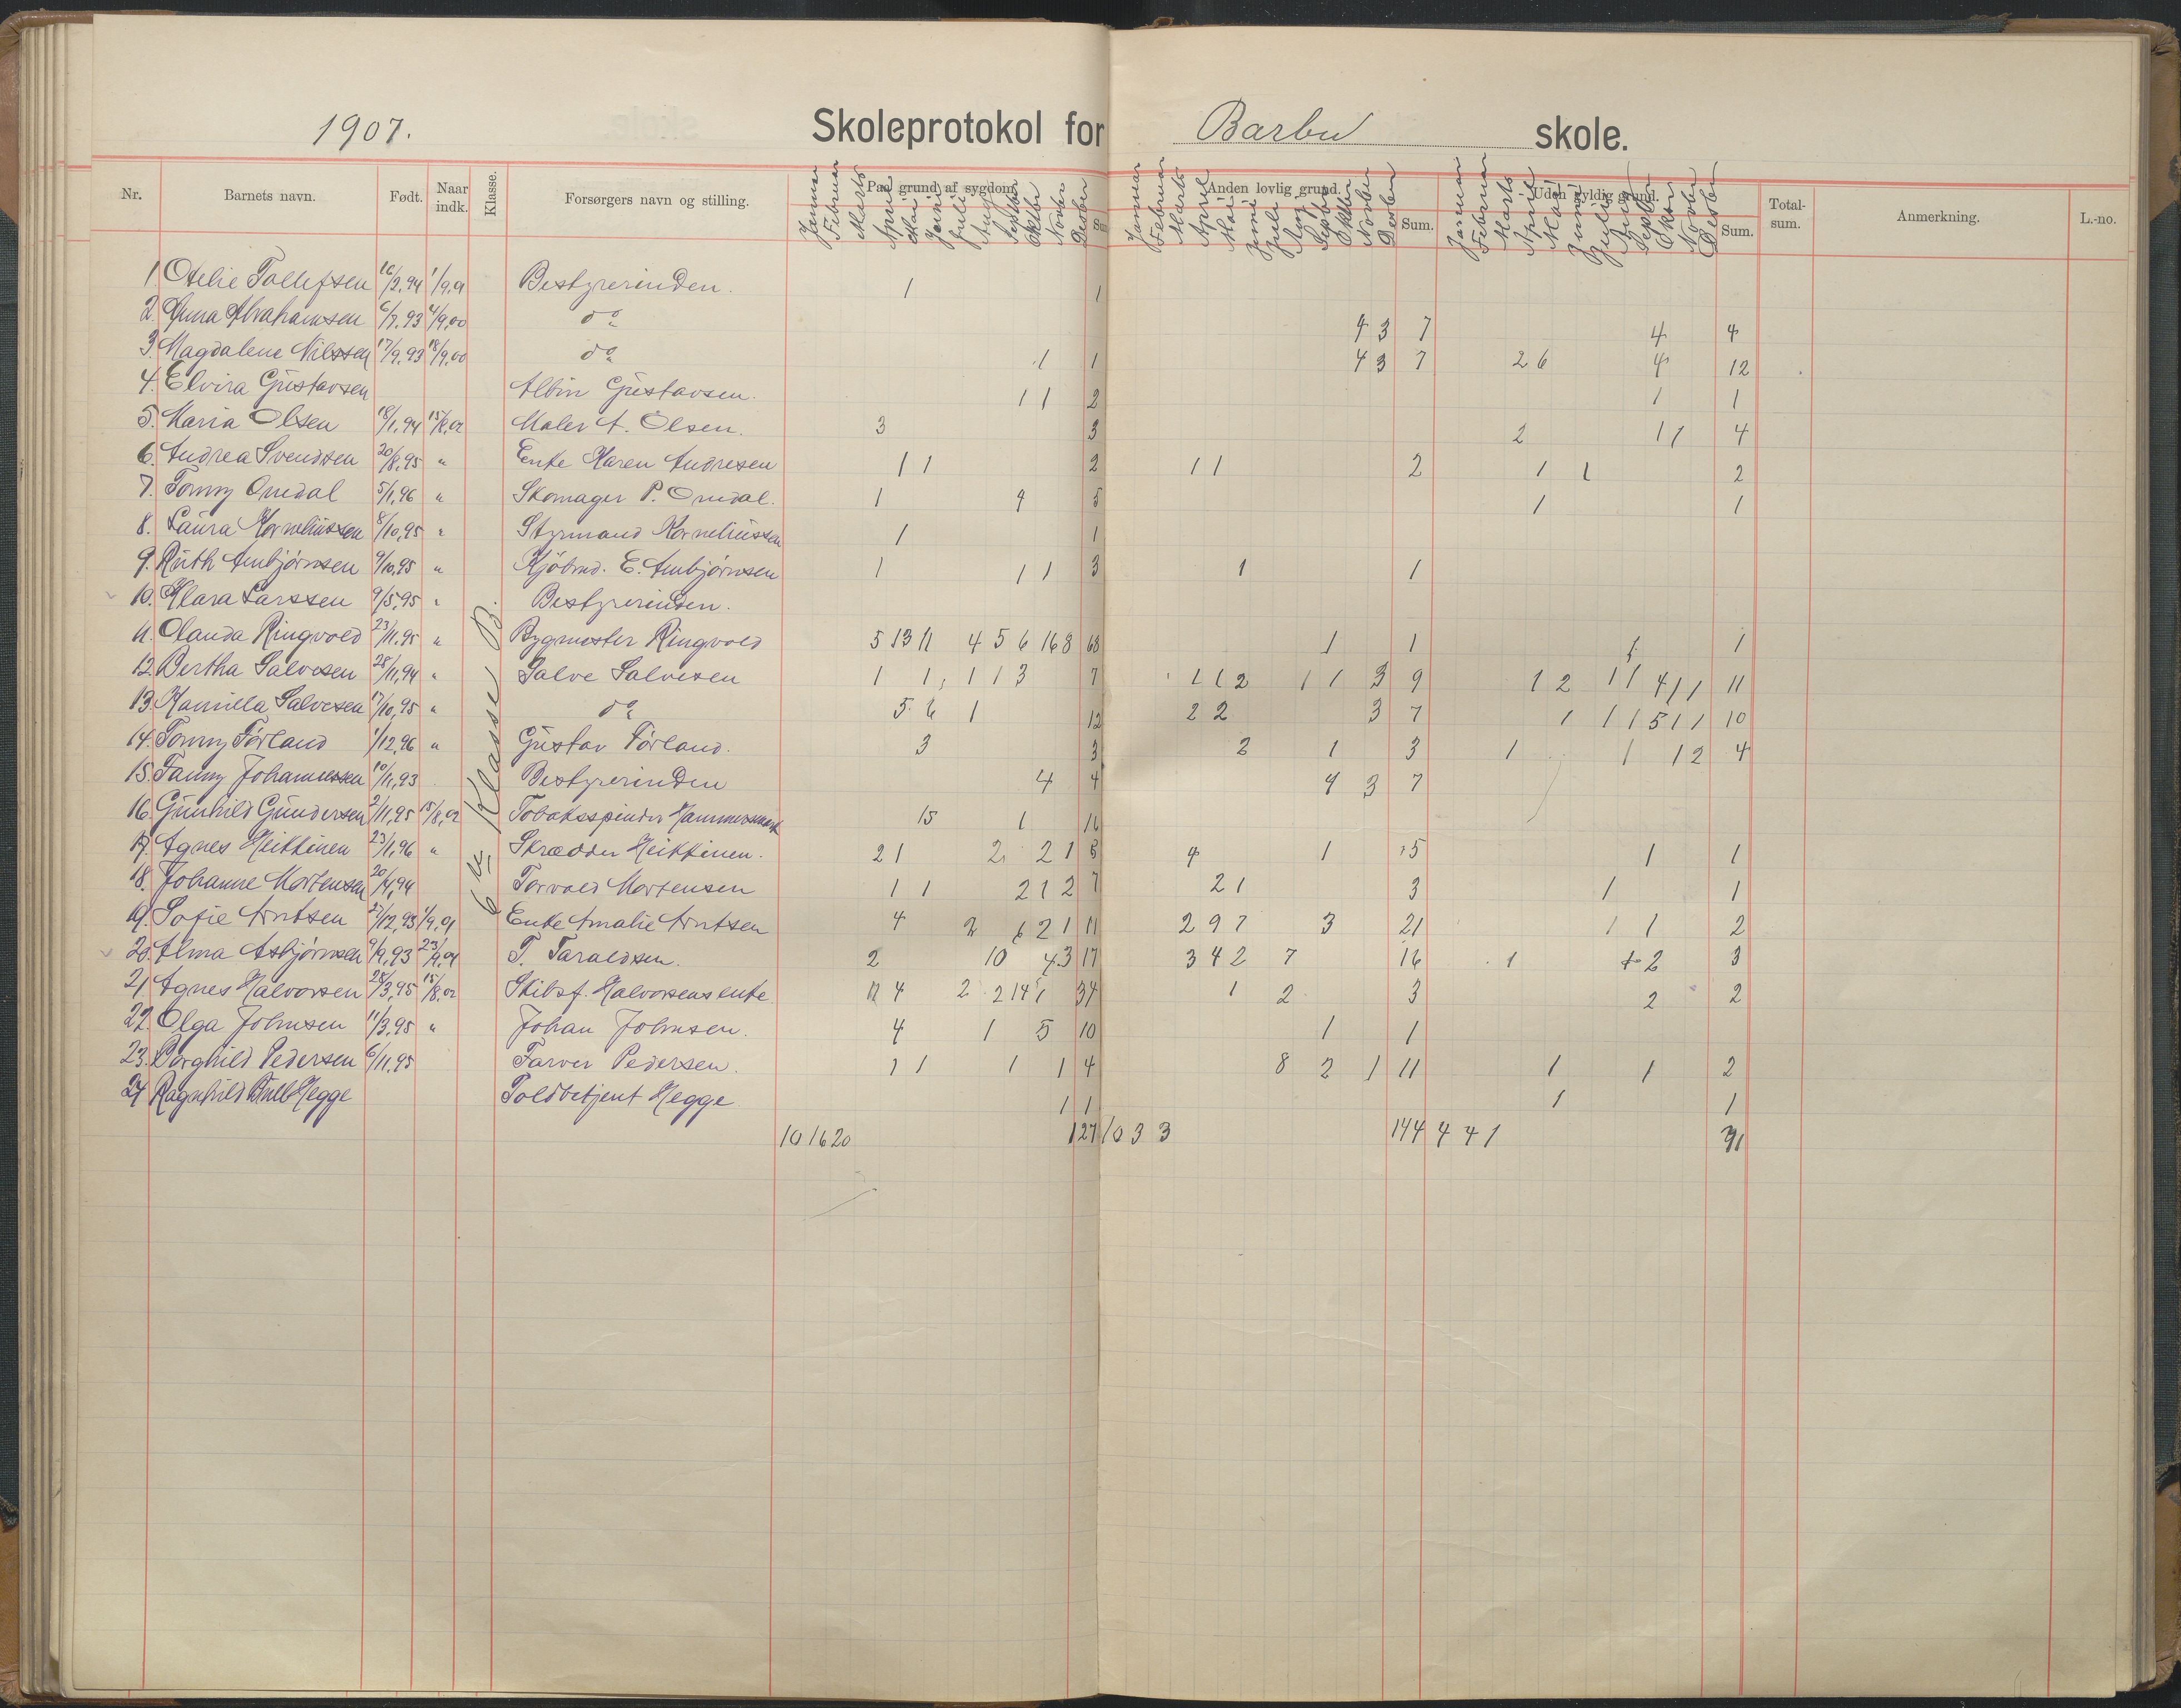 1907. Skoleprotokol for Barbu skole.
Nr. Barnets navn. Født. Naar indk. Klasse. Forsørgers navn og stilling. Paa grund af sygdom. Anden lovlig grund. Sum. Uden gyldig grund. Sum. Total-sum. Anmerkning. L.-no.
Januar Februar Marts April Mai Juni Juli Aug Septbr Oktbr Novbr Decbr
Januar Februar Marts April Mai Juni Juli Aug Septbr Oktbr Novbr Decbr
Januar Februar Marts April Mai Juni Juli Aug Septbr Oktbr Novbr Decbr
6 kl. Klasse B.
1. Otelie Tollefsen 16/2,94 1/9,01 Bestyrerinden. 1 1
2. Anna Abrahamsen 6/7,93 4/9,00 do 4 3 7 4 4
3. Magdalene Nilssen 17/9,93 18/9,00 do 1 1 4 3 7 2 6 4 12
4. Elvira Gustavsen Albin Gustavsen. 1 1 2 1 1
5. Maria Olsen 18/1,94 15/8,02 Maler A. Olsen. 3 3 2 1 1 4
6. Andrea Svendsen 20/8,95 " Enke Karen Andresen 1 1 2 1 1 2 1 1 2
7. Tomny Omdal 5/1,96 " Skomager P. Omdal. 1 4 5 1 1
8. Laura Korneliussen 8/10,95 " Styrmand Korneliussen 1 1
9. Ruth Ambjørnsen 9/10,95 " Kjøbmd. E. Ambjørnsen 1 1 1 3 1 1
10. Klara Larssen 9/5,95 " Bestyrerinden.
11. Olanda Ringvold 23/11,95 " Bygmester Ringvold 5 13 11 4 5 6 16 8 68 1 1 1 1
12. Bertha Salvesen 28/11,94 " Salve Salvesen 1 1 1 1 3 7 1 1 2 1 1 3 9 1 2 1 1 4 1 1 11
13. Kamilla Salvesen 17/10,95 " do 5 6 1 12 2 2 3 7 1 1 1 5 1 1 10
14. Tomny Førland 1/12,96 " Gustav Førland. 3 3 2 1 3 1 1 1 2 4
15. Fanny Johannessen 10/11,93 Bestyrerinden 4 4 4 3 7
16. Gunhild Gundersen 2/11,95 15/8,02 Tobaksspinder Hammersmark 15 1 16
17. Agnes Heikkinen 23/1,96 " Skrædder Heikkinen. 2 1 2 2 1 8 4 1 5 1 1
18. Johanne Mortensen 20/4,94 Torvald Mortensen 1 1 2 1 2 7 2 1 3 1 1
19. Sofie Arntsen 27/12,93 1/9,01 Enke Amalie Arntsen 4 2 6 2 1 11 2 9 7 3 21 1 1 2
20. Alma Asbjørnsen 9/9,93 23/9,01 T. Taraldsen. 2 10 4 3 17 3 4 2 7 16 1 2 3
21. Agnes Halvorsen 28/3,95 15/8,02 Skibsf. Halvorsens enke. 11 4 2 2 14 1 34 1 2 3 2 2
22. Olga Johnsen 11/3,95 " Johan Johnsen. 4 1 5 10 1 1
23. Borghild Pedersen 6/11,95 Farver Pedersen. 1 1 1 1 4 8 2 1 11 1 1 2
24. Ragnhild Bull Hegge Toldbetjent Hegge 1 1 1 1
10 16 20 127 10 3 3 144 4 4 1 71